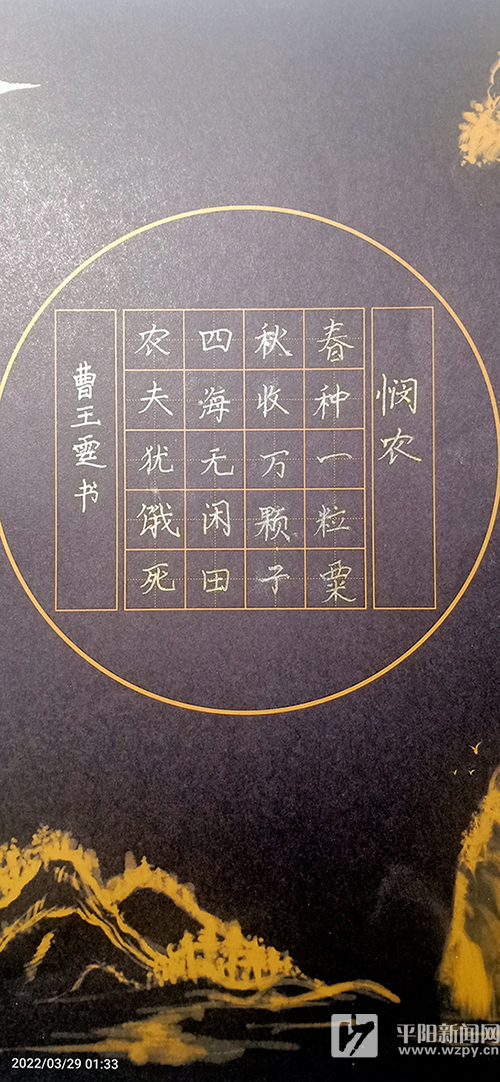 悯农
春种一粒粟
秋收万颗子
四海无闲田
农夫犹俄死
曹王霆书
2022/03/29 01:33
平阳新闻网
www.wzpy.cn